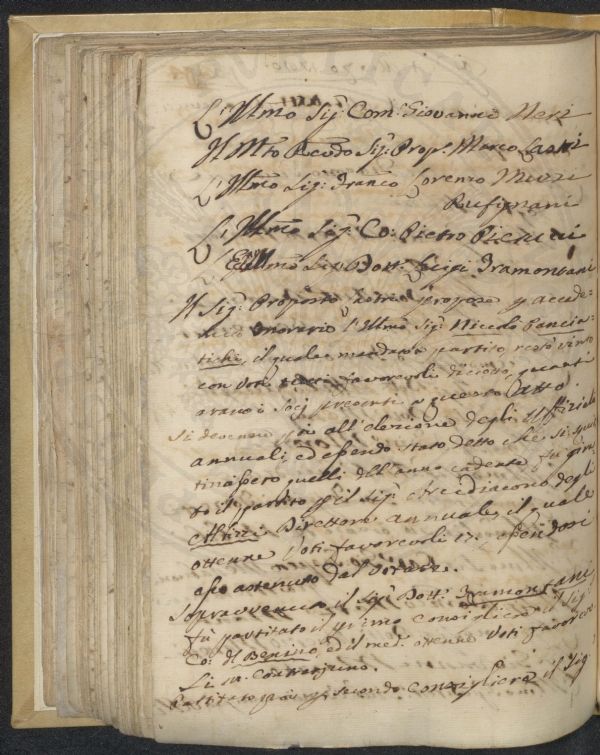 L'Illmo Sig: Com: Giovanni Neri
Il Mto Revdo Sig: Prop. Marco Lastri
L'Illmo Sig: Franco Lorenzo Muzzi
Rufignani
L'Illmo Sig: Co: Pietro
L' Illmo Sig: Dott: Luigi Tramontani
Il Sig: Proposto Lastri propose p accade-
Onorario l'Illmo Sig: Niccolò Pancia-
tichi, il quale mandato a partito restò vinto
con voti tutti favorevoli diciotto, quanti
erano i Socj presenti a questo Atto.
Si devenne poi all'elezione degli Uffiziali
annuali, ed essendo stato detto che si squit
tinassero quelli dell'anno cadente fù gira
to il partito p il Sig: Arcidiacono degli
Albizzi Direttore annuale, il quale
ottenne Voti favorevoli 17. essendosi
esso astenuto dal Votare.
Sopravvenuto il Sig: Dott: Tramontani
fù partitato il primo Consigliere il Sig:
Co: del Benino, ed il med: ottenne Voti favorevo
li contrar uno.
Partitato poi p secondo Consigliere il Sig: